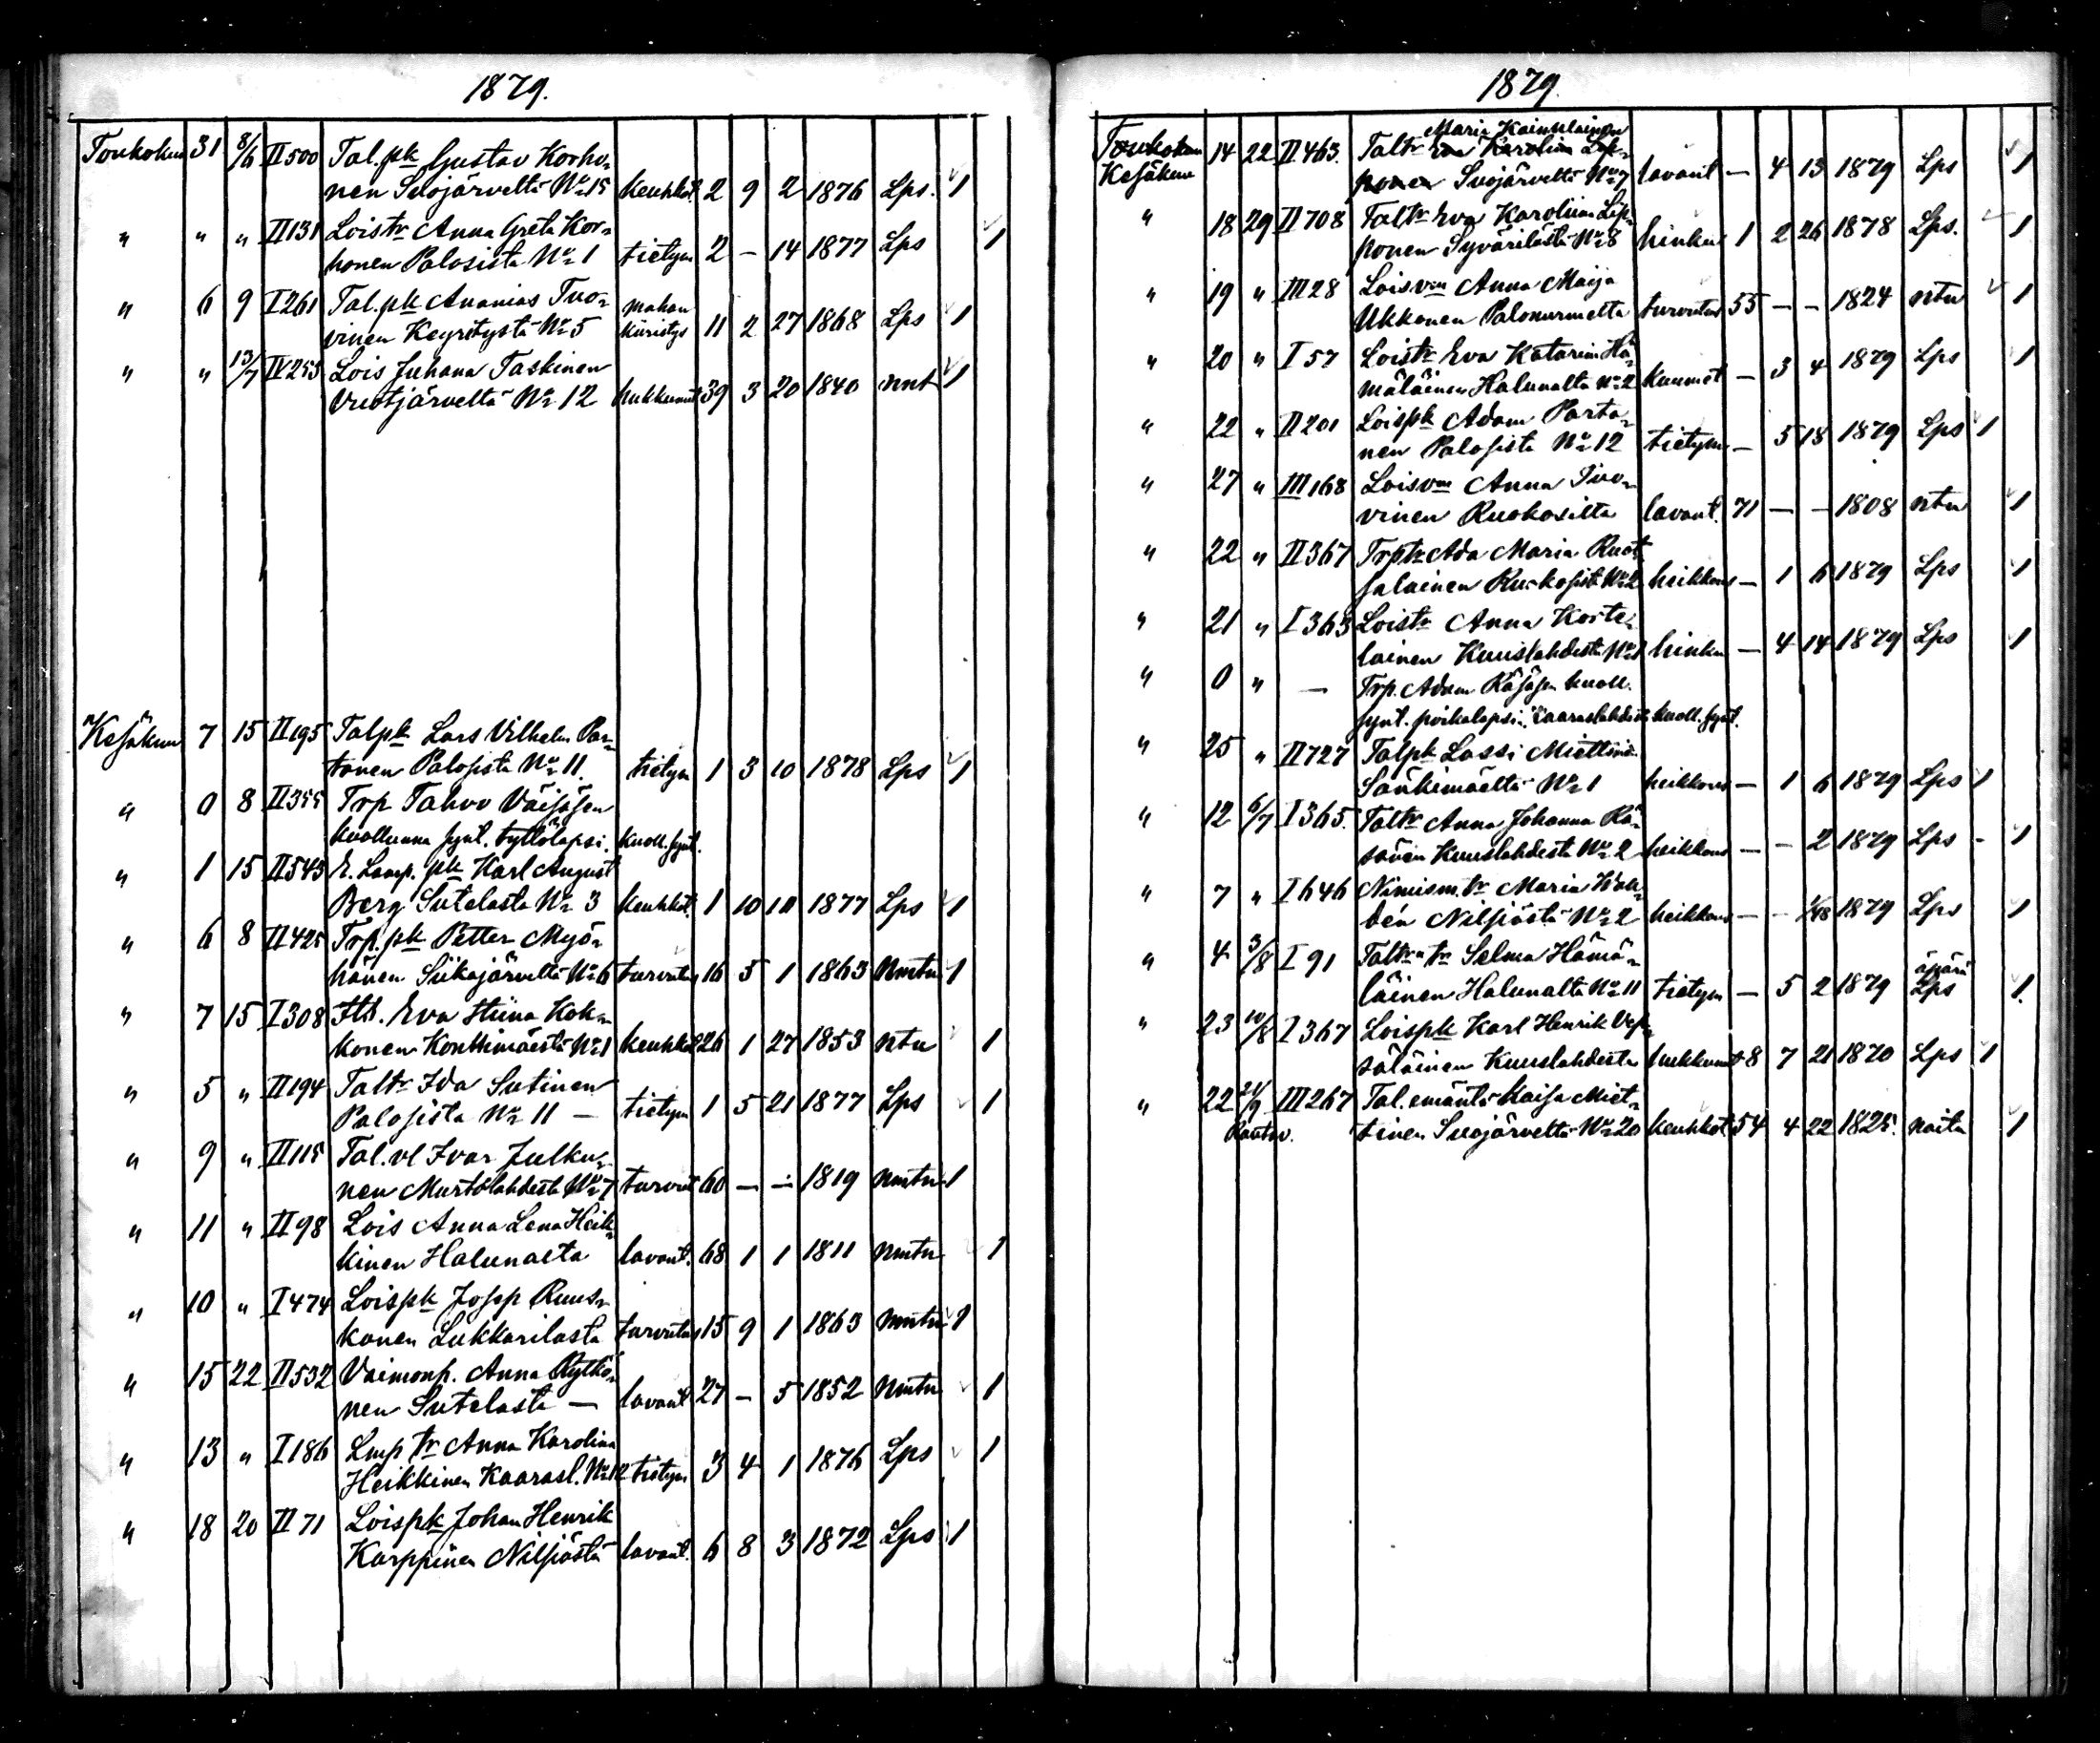 1879.
Toukokuu 31 8/6 II 500 Tal.pk Gustav Korho-
nen Suojärveltä No 15 keuhkot. 2 9 2 1876 Lps. 1
" " " II 131 Loistr Anna Greta Kor-
honen Palosista No 1 tietym 2 - 14 1877 Lps 1
" 6 9 I 261 Tal.pk Ananias Tuo- mahan
vinen Keyritystä No 5 kiiristys 11 2 27 1868 Lps 1
" " 13/7 IV 253 Lois Juhana Taskinen
Vuotjärveltä No 12 hukkunut 39 3 20 1840 nnt 1
Kesäkuu 7 15 II 195 Talpk Lars Vilhelm Par-
tanen Palosista No 11. tietym 1 3 10 1878 Lps 1
" 0 8 II 355 Trp Tahvo Väisäsen
kuolluna synt. tyttölapsi. kuoll. synt.
" 1 15 II 543 E. Lamp. pk Karl August
Berg Sutelasta No 3 keuhkot. 1 10 11 1877 Lps 1
" 6 8 II 425 Trp.pk Petter Myö-
hänen Siikajärveltä No 6 turvutus 16 5 1 1863 nmtn 1
" 7 15 I 308 Itl. Eva Stiina Kok-
konen Konttimäestä No 1 keuhkot 26 1 27 1853 ntu 1
" 5 " II 194 Taltr Ida Sutinen
Palosista No 11 - tietym 1 5 21 1877 Lps 1
" 9 " II 115 Tal.vl Ivar Julku-
nen Murtolahdesta No 7 turvut 60 - - 1819 nmtn 1
" 11 " II 98 Lois Anna Lena Heik-
kinen Halunalta lavant. 68 1 1 1811 nmtn 1
" 10 " I 474 Loispk Josep Ruus-
konen Lukkarilasta turvutus 15 9 1 1863 nmtn 1
" 15 22 II 532 Vaimonp. Anna Rytkö-
nen Sutelasta - lavant 27 - 5 1852 nmtn 1
" 13 " I 186 Lmp tr Anna Karolina
Heikkinen Kaarasl. No 12 tietym 3 4 1 1876 Lps 1
" 18 20 II 71 Loispk Johan Henrik
Karppinen Nilsiästä lavant. 6 8 3 1872 Lps 1
1879.
Maria Kainulainen
Toukokuu 14 22 II 463. Taltr Eva Karolina Lip-
Kesäkuu ponen Suojärveltä No 7 lavant - 4 13 1879 Lps 1
" 18 29 II 708 Taltr Eva Karoliina Lip-
ponen Syvärilästä No 8 hinku 1 2 26 1878 Lps. 1
" 19 " III 28 Loisvm Anna Maija
Ukkonen Palonurmelta turvutus 55 - - 1824 ntu 1
" 20 " I 57 Loistr Eva Katarina Hä-
mäläinen Halunalta No 2 kuumet - 3 4 1879 Lps 1
" 22 " II 201 Loispk Adam Parta-
nen Palosista No 12 tietym - 5 18 1879 Lps 1
" 27 " III 168 Loisvm Anna Tuo-
vinen Ruokosilta lavant. 71 - - 1808 ntu 1
" 22 " II 367 Trptr Ada Maria Ruot-
salainen Ruokosilta No 2 heikkous - 1 6 1879 Lps 1
" 21 " I 363 Loistr Anna Korte-
lainen Kuuslahdesta No 1 hinku - 4 14 1879 Lps 1
" 0 " - Trp. Adam Räsäsen kuoll.
synt. poikalapsi. Kaaraslahdesta kuoll. synt.
" 25 " II 727 Talpk Lassi Miettinen
Sänkimäeltä No 1 heikkous - 1 6 1879 Lps 1
" 12 6/7 I 365. Taltr Anna Johanna Rä-
sänen Kuuslahdesta No 2 heikkous - - 2 1879 Lps - 1
" 7 " I 646 Nimism. tr Maria
Nilsiästä No 2 heikkous - - 1/48 1879 Lps 1
" 4 3/8 I 91 Taltr tr Selma Hämä- äpärä
läinen Halunalta No 11 tietym - 5 2 1879 Lps 1.
" 23 10/8 I 367 Loispk Karl Henrik Vep-
säläinen Kuuslahdesta hukkunut 8 7 21 1870 Lps 1
" 22 21/9 III 267 Tal. emäntä Kaisa Miet-
Rautav. tinen Suojärveltä No 20 keuhkot 54 4 22 1825. naitu 1